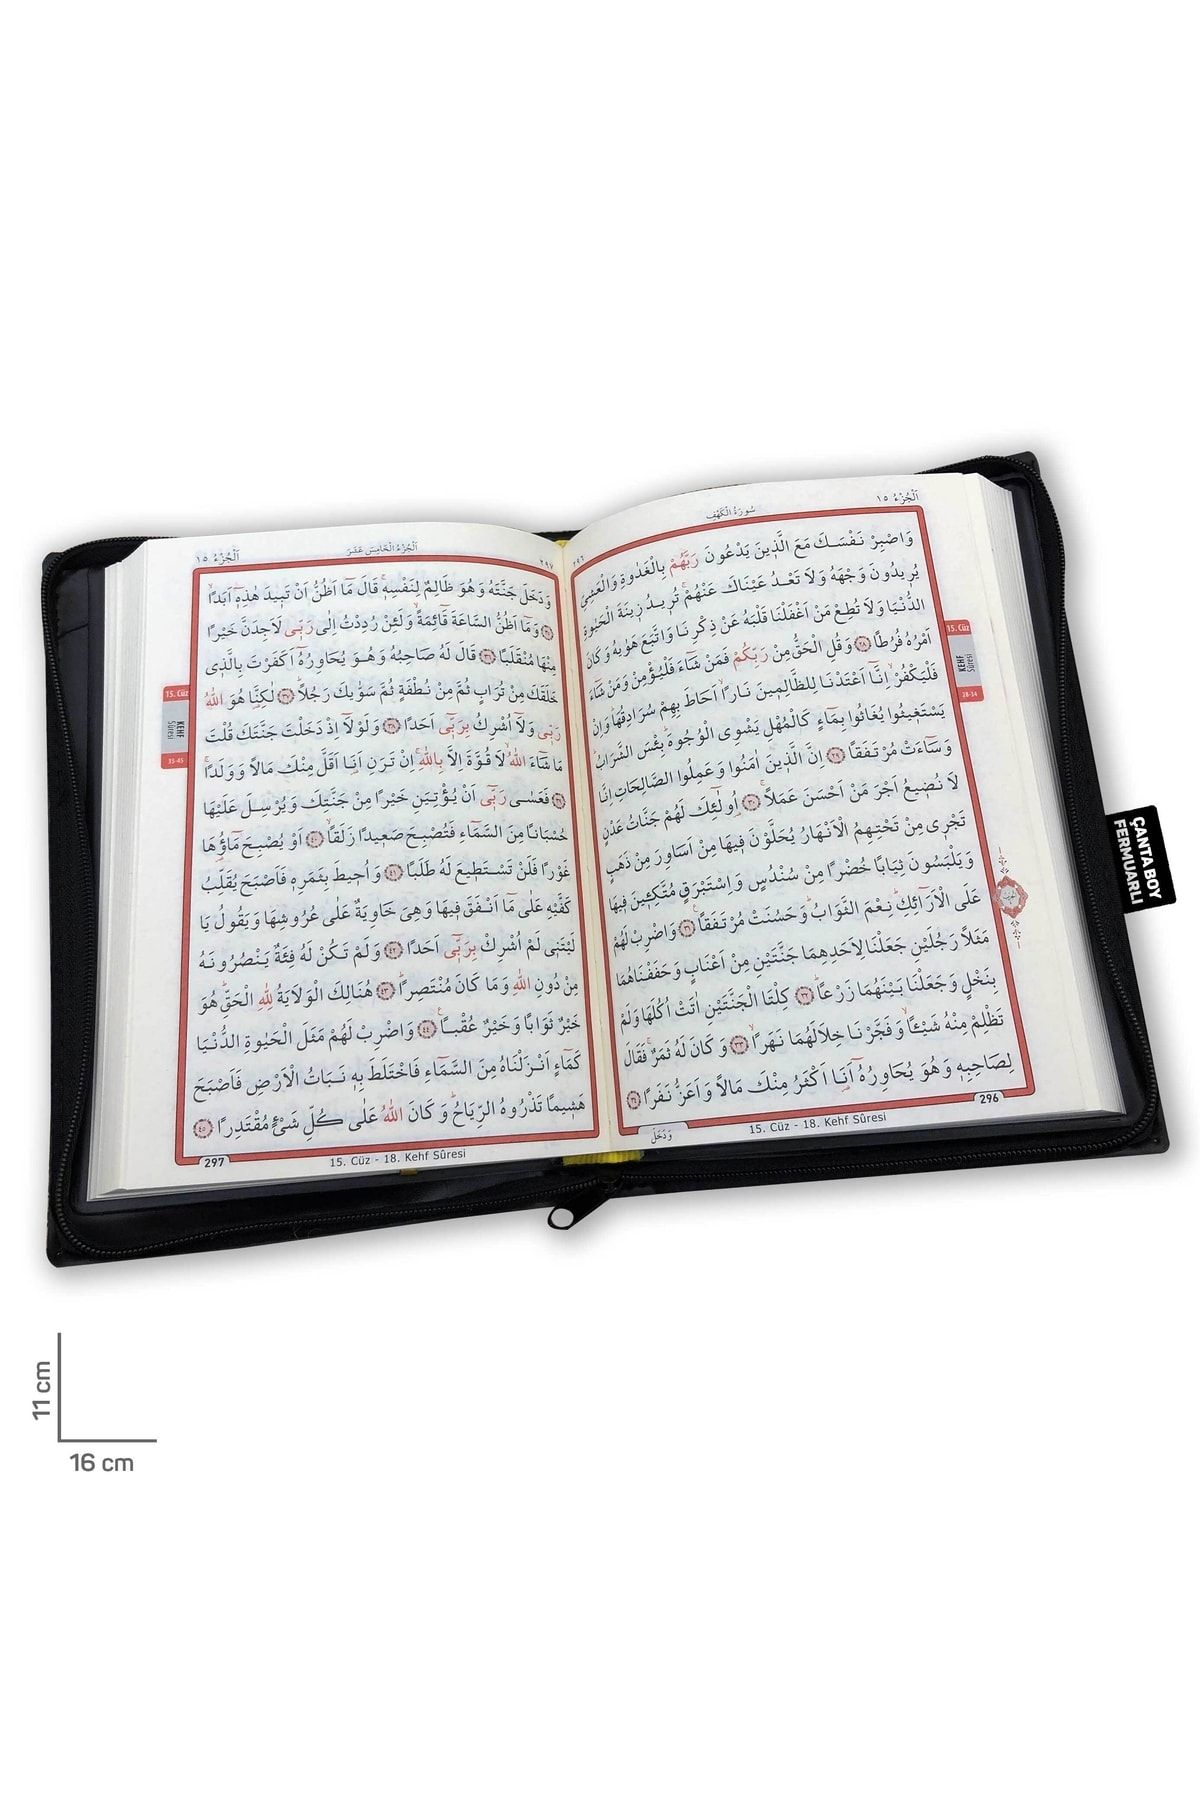 اَلْجُزْءُ ١٥
سُورَةُ الْكَهْفِ
٢٩٦
وَاصْبِرْ نَفْسَكَ مَعَ الَّذٖينَ يَدْعُونَ رَبَّهُمْ بِالْغَدٰوةِ وَالْعَشِيِّ
يُرٖيدُونَ وَجْهَهُ وَلَا تَعْدُ عَيْنَاكَ عَنْهُمْۚ تُرٖيدُ زٖينَةَ الْحَيٰوةِ
الدُّنْيَا وَلَا تُطِعْ مَنْ اَغْفَلْنَا قَلْبَهُ عَنْ ذِكْرِنَا وَاتَّبَعَ هَوٰيهُ وَكَانَ
اَمْرُهُ فُرُطًا ﴿٢٨﴾ وَقُلِ الْحَقُّ مِنْ رَبِّكُمْ فَمَنْ شَٓاءَ فَلْيُؤْمِنْ وَمَنْ شَٓاءَ
فَلْيَكْفُرْۙ اِنَّٓا اَعْتَدْنَا لِلظَّالِمٖينَ نَارًاۙ اَحَاطَ بِهِمْ سُرَادِقُهَاۜ وَاِنْ
يَسْتَغٖيثُوا يُغَاثُوا بِمَٓاءٍ كَالْمُهْلِ يَشْوِى الْوُجُوهَۜ بِئْسَ الشَّرَابُۜ
وَسَٓاءَتْ مُرْتَفَقًا ﴿٢٩﴾ اِنَّ الَّذٖينَ اٰمَنُوا وَعَمِلُوا الصَّالِحَاتِ اِنَّا
لَا نُضٖيعُ اَجْرَ مَنْ اَحْسَنَ عَمَلًاۚ ﴿٣٠﴾ اُو۬لٰٓئِكَ لَهُمْ جَنَّاتُ عَدْنٍ
تَجْرٖى مِنْ تَحْتِهِمُ الْاَنْهَارُ يُحَلَّوْنَ فٖيهَا مِنْ اَسَاوِرَ مِنْ ذَهَبٍ
وَيَلْبَسُونَ ثِيَابًا خُضْرًا مِنْ سُنْدُسٍ وَاِسْتَبْرَقٍ مُتَّكِـٖٔينَ فٖيهَا
عَلَى الْاَرَٓائِكِۜ نِعْمَ الثَّوَابُۜ وَحَسُنَتْ مُرْتَفَقًا۟ ﴿٣١﴾ وَاضْرِبْ لَهُمْ
مَثَلًا رَجُلَيْنِ جَعَلْنَا لِاَحَدِهِمَا جَنَّتَيْنِ مِنْ اَعْنَابٍ وَحَفَفْنَاهُمَا
بِنَخْلٍ وَجَعَلْنَا بَيْنَهُمَا زَرْعًاۜ ﴿٣٢﴾ كِلْتَا الْجَنَّتَيْنِ اٰتَتْ اُكُلَهَا وَلَمْ
تَظْلِمْ مِنْهُ شَيْـًٔاۙ وَفَجَّرْنَا خِلَالَهُمَا نَهَرًاۙ ﴿٣٣﴾ وَكَانَ لَهُ ثَمَرٌۚ فَقَالَ
لِصَاحِبِهٖ وَهُوَ يُحَاوِرُهُٓ اَنَا۬ اَكْثَرُ مِنْكَ مَالًا وَاَعَزُّ نَفَرًا ﴿٣٤﴾
وَدَخَلَ
15. Cüz - 18. Kehf Sûresi
296
15. Cüz
KEHF
Sûresi
28-34
ÇANTA BOY
FERMUARLI
٢٩٧
اَلْجُزْءُ الْخَامِسَ عَشَرَ
اَلْجُزْءُ ١٥
وَدَخَلَ جَنَّتَهُ وَهُوَ ظَالِمٌ لِنَفْسِهٖۚ قَالَ مَٓا اَظُنُّ اَنْ تَبٖيدَ هٰذِهٖٓ اَبَدًاۙ
﴿٣٥﴾ وَمَٓا اَظُنُّ السَّاعَةَ قَٓائِمَةًۙ وَلَئِنْ رُدِدْتُ اِلٰى رَبّٖى لَاَجِدَنَّ خَيْرًا
مِنْهَا مُنْقَلَبًا ﴿٣٦﴾ قَالَ لَهُ صَاحِبُهُ وَهُوَ يُحَاوِرُهُٓ اَكَفَرْتَ بِالَّذٖى
خَلَقَكَ مِنْ تُرَابٍ ثُمَّ مِنْ نُطْفَةٍ ثُمَّ سَوّٰيكَ رَجُلًاۜ ﴿٣٧﴾ لٰكِنَّا۬ هُوَ اللّٰهُ
رَبّٖى وَلَٓا اُشْرِكُ بِرَبّٖٓى اَحَدًا ﴿٣٨﴾ وَلَوْلَٓا اِذْ دَخَلْتَ جَنَّتَكَ قُلْتَ
مَا شَٓاءَ اللّٰهُۙ لَا قُوَّةَ اِلَّا بِاللّٰهِۚ اِنْ تَرَنِ اَنَا۬ اَقَلَّ مِنْكَ مَالًا وَوَلَدًاۚ
﴿٣٩﴾ فَعَسٰى رَبّٖٓى اَنْ يُؤْتِيَنِ خَيْرًا مِنْ جَنَّتِكَ وَيُرْسِلَ عَلَيْهَا
حُسْبَانًا مِنَ السَّمَٓاءِ فَتُصْبِحَ صَعٖيدًا زَلَقًاۙ ﴿٤٠﴾ اَوْ يُصْبِحَ مَٓاؤُ۬هَا
غَوْرًا فَلَنْ تَسْتَطٖيعَ لَهُ طَلَبًا ﴿٤١﴾ وَاُحٖيطَ بِثَمَرِهٖ فَاَصْبَحَ يُقَلِّبُ
كَفَّيْهِ عَلٰى مَٓا اَنْفَقَ فٖيهَا وَهِىَ خَاوِيَةٌ عَلٰى عُرُوشِهَا وَيَقُولُ يَا
لَيْتَنٖى لَمْ اُشْرِكْ بِرَبّٖٓى اَحَدًا ﴿٤٢﴾ وَلَمْ تَكُنْ لَهُ فِئَةٌ يَنْصُرُونَهُ
مِنْ دُونِ اللّٰهِ وَمَا كَانَ مُنْتَصِرًاۜ ﴿٤٣﴾ هُنَالِكَ الْوَلَايَةُ لِلّٰهِ الْحَقِّۜ هُوَ
خَيْرٌ ثَوَابًا وَخَيْرٌ عُقْبًا۟ ﴿٤٤﴾ وَاضْرِبْ لَهُمْ مَثَلَ الْحَيٰوةِ الدُّنْيَا
كَمَٓاءٍ اَنْزَلْنَاهُ مِنَ السَّمَٓاءِ فَاخْتَلَطَ بِهٖ نَبَاتُ الْاَرْضِ فَاَصْبَحَ
هَشٖيمًا تَذْرُوهُ الرِّيَاحُۜ وَكَانَ اللّٰهُ عَلٰى كُلِّ شَىْءٍ مُقْتَدِرًا ﴿٤٥﴾
297
15. Cüz - 18. Kehf Sûresi
15. Cüz
KEHF
Sûresi
35-45
11 cm
16 cm